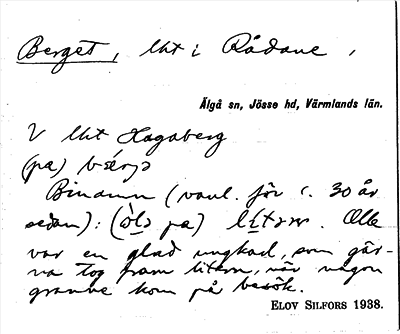 Berget, lht i Rådane,
Älgå sn, Jösse hd, Värmlands län.
V lht Hagaberg
(pa)
Binamn (vanl. för c. 30 år
sedan): (òlə pa) lítərn. Olle
var en glad ungkarl, som gär-
na tog fram litern, när någon
granne kom på besök.
ELOV SILFORS 1938.